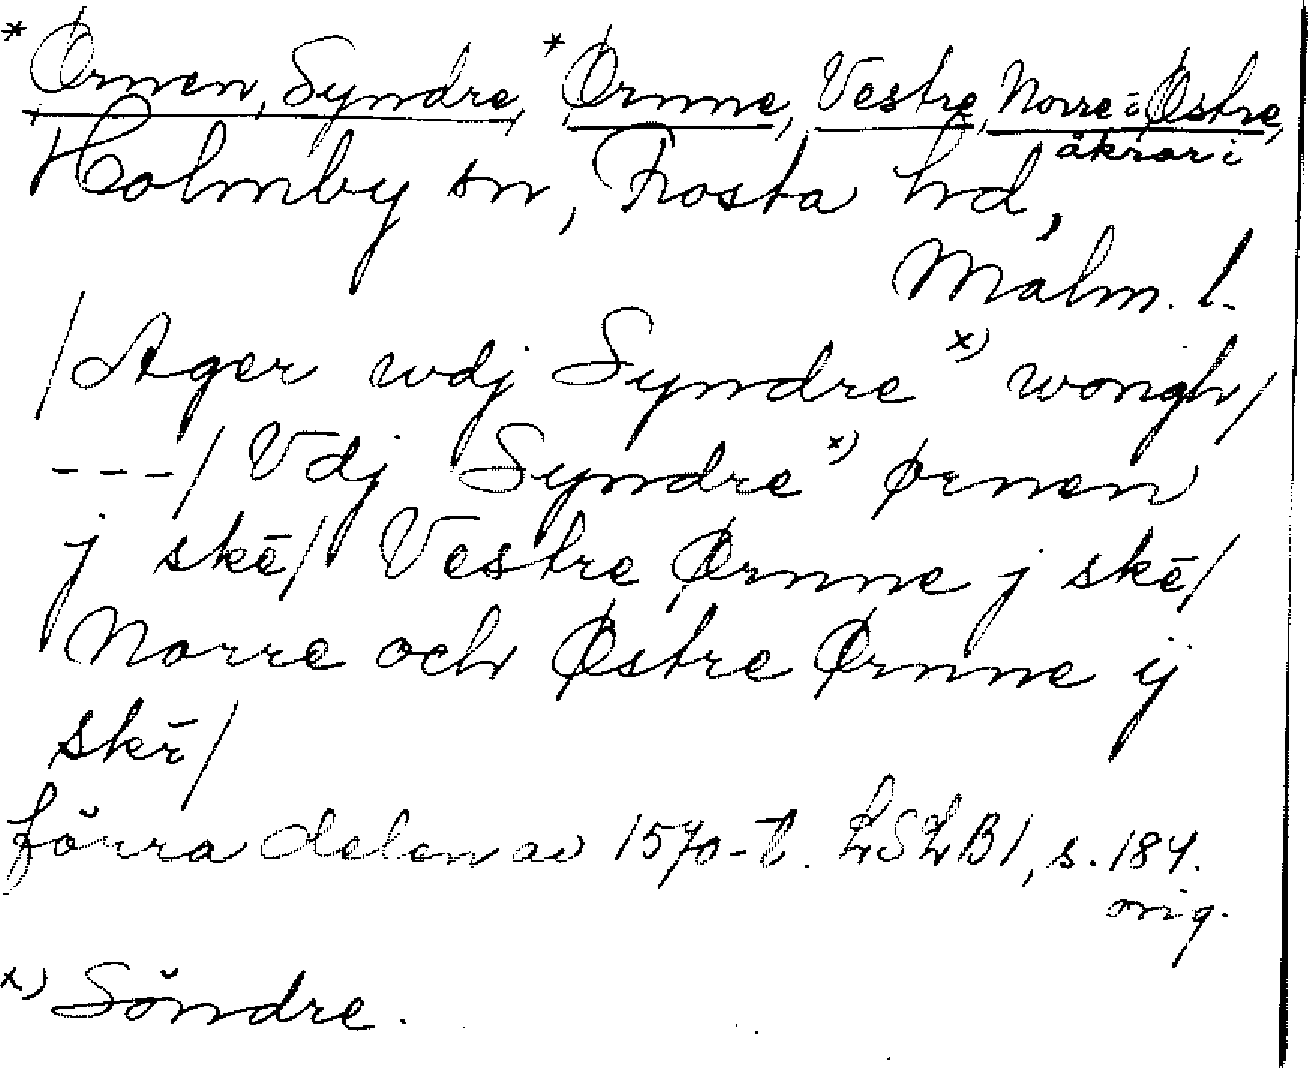 *Ørnen, Syndre, *Ørnne, Vestre, Norre o Østre,
åkrar i
Holmby sn, Frosta hd,
Malm. l.
/Ager wdj Syndre x) wongh/
---/ Vdj Syndre x) ørnen
j skē/ Vestre Ørnne j skē/
Norre och Østre Ørnne ij
skē/
förra delen av 1570-t. LSLB1, s. 184.
orig.
x) Söndre.